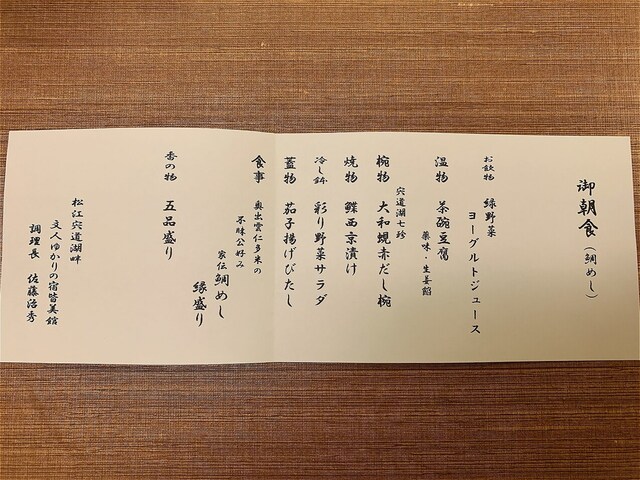 御朝食（鯛めし）
お飲物 緑野菜
ヨーグルトジュース
温物 茶碗豆腐
薬味・生姜餡
宍道湖七珍
椀物 大和蜆赤だし椀
焼物 鰈西京漬け
冷し鉢 彩り野菜サラダ
蓋物 茄子揚げびたし
食事 奥出雲仁多米の
不昧公好み
家伝鯛めし
縁盛り
香の物 五品盛り
松江宍道湖畔
文人ゆかりの宿皆美館
調理長 佐藤治秀